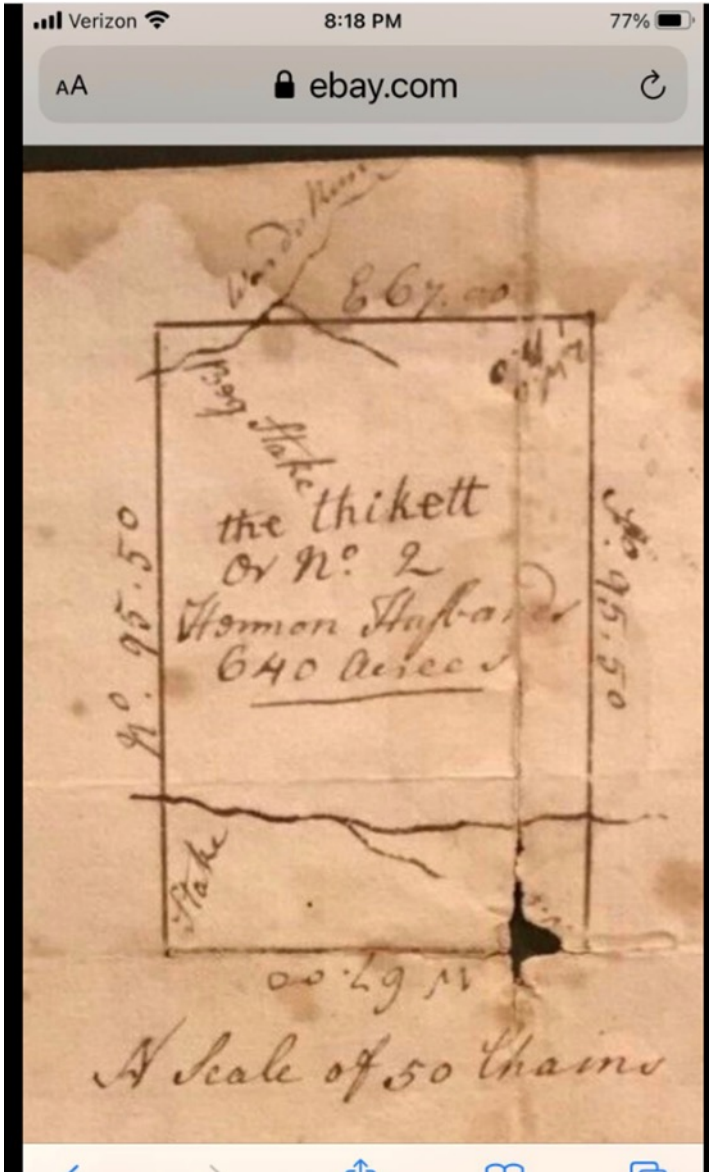 Verizon 8:18 PM 77%
AA ebay.com
E 67.00
Beg
Stake
the thikett
or No. 2
Hermon Husbands
640 Acrees
No. 95.50
So. 95.50
Stake
W 67.00
A Scale of 50 Chains